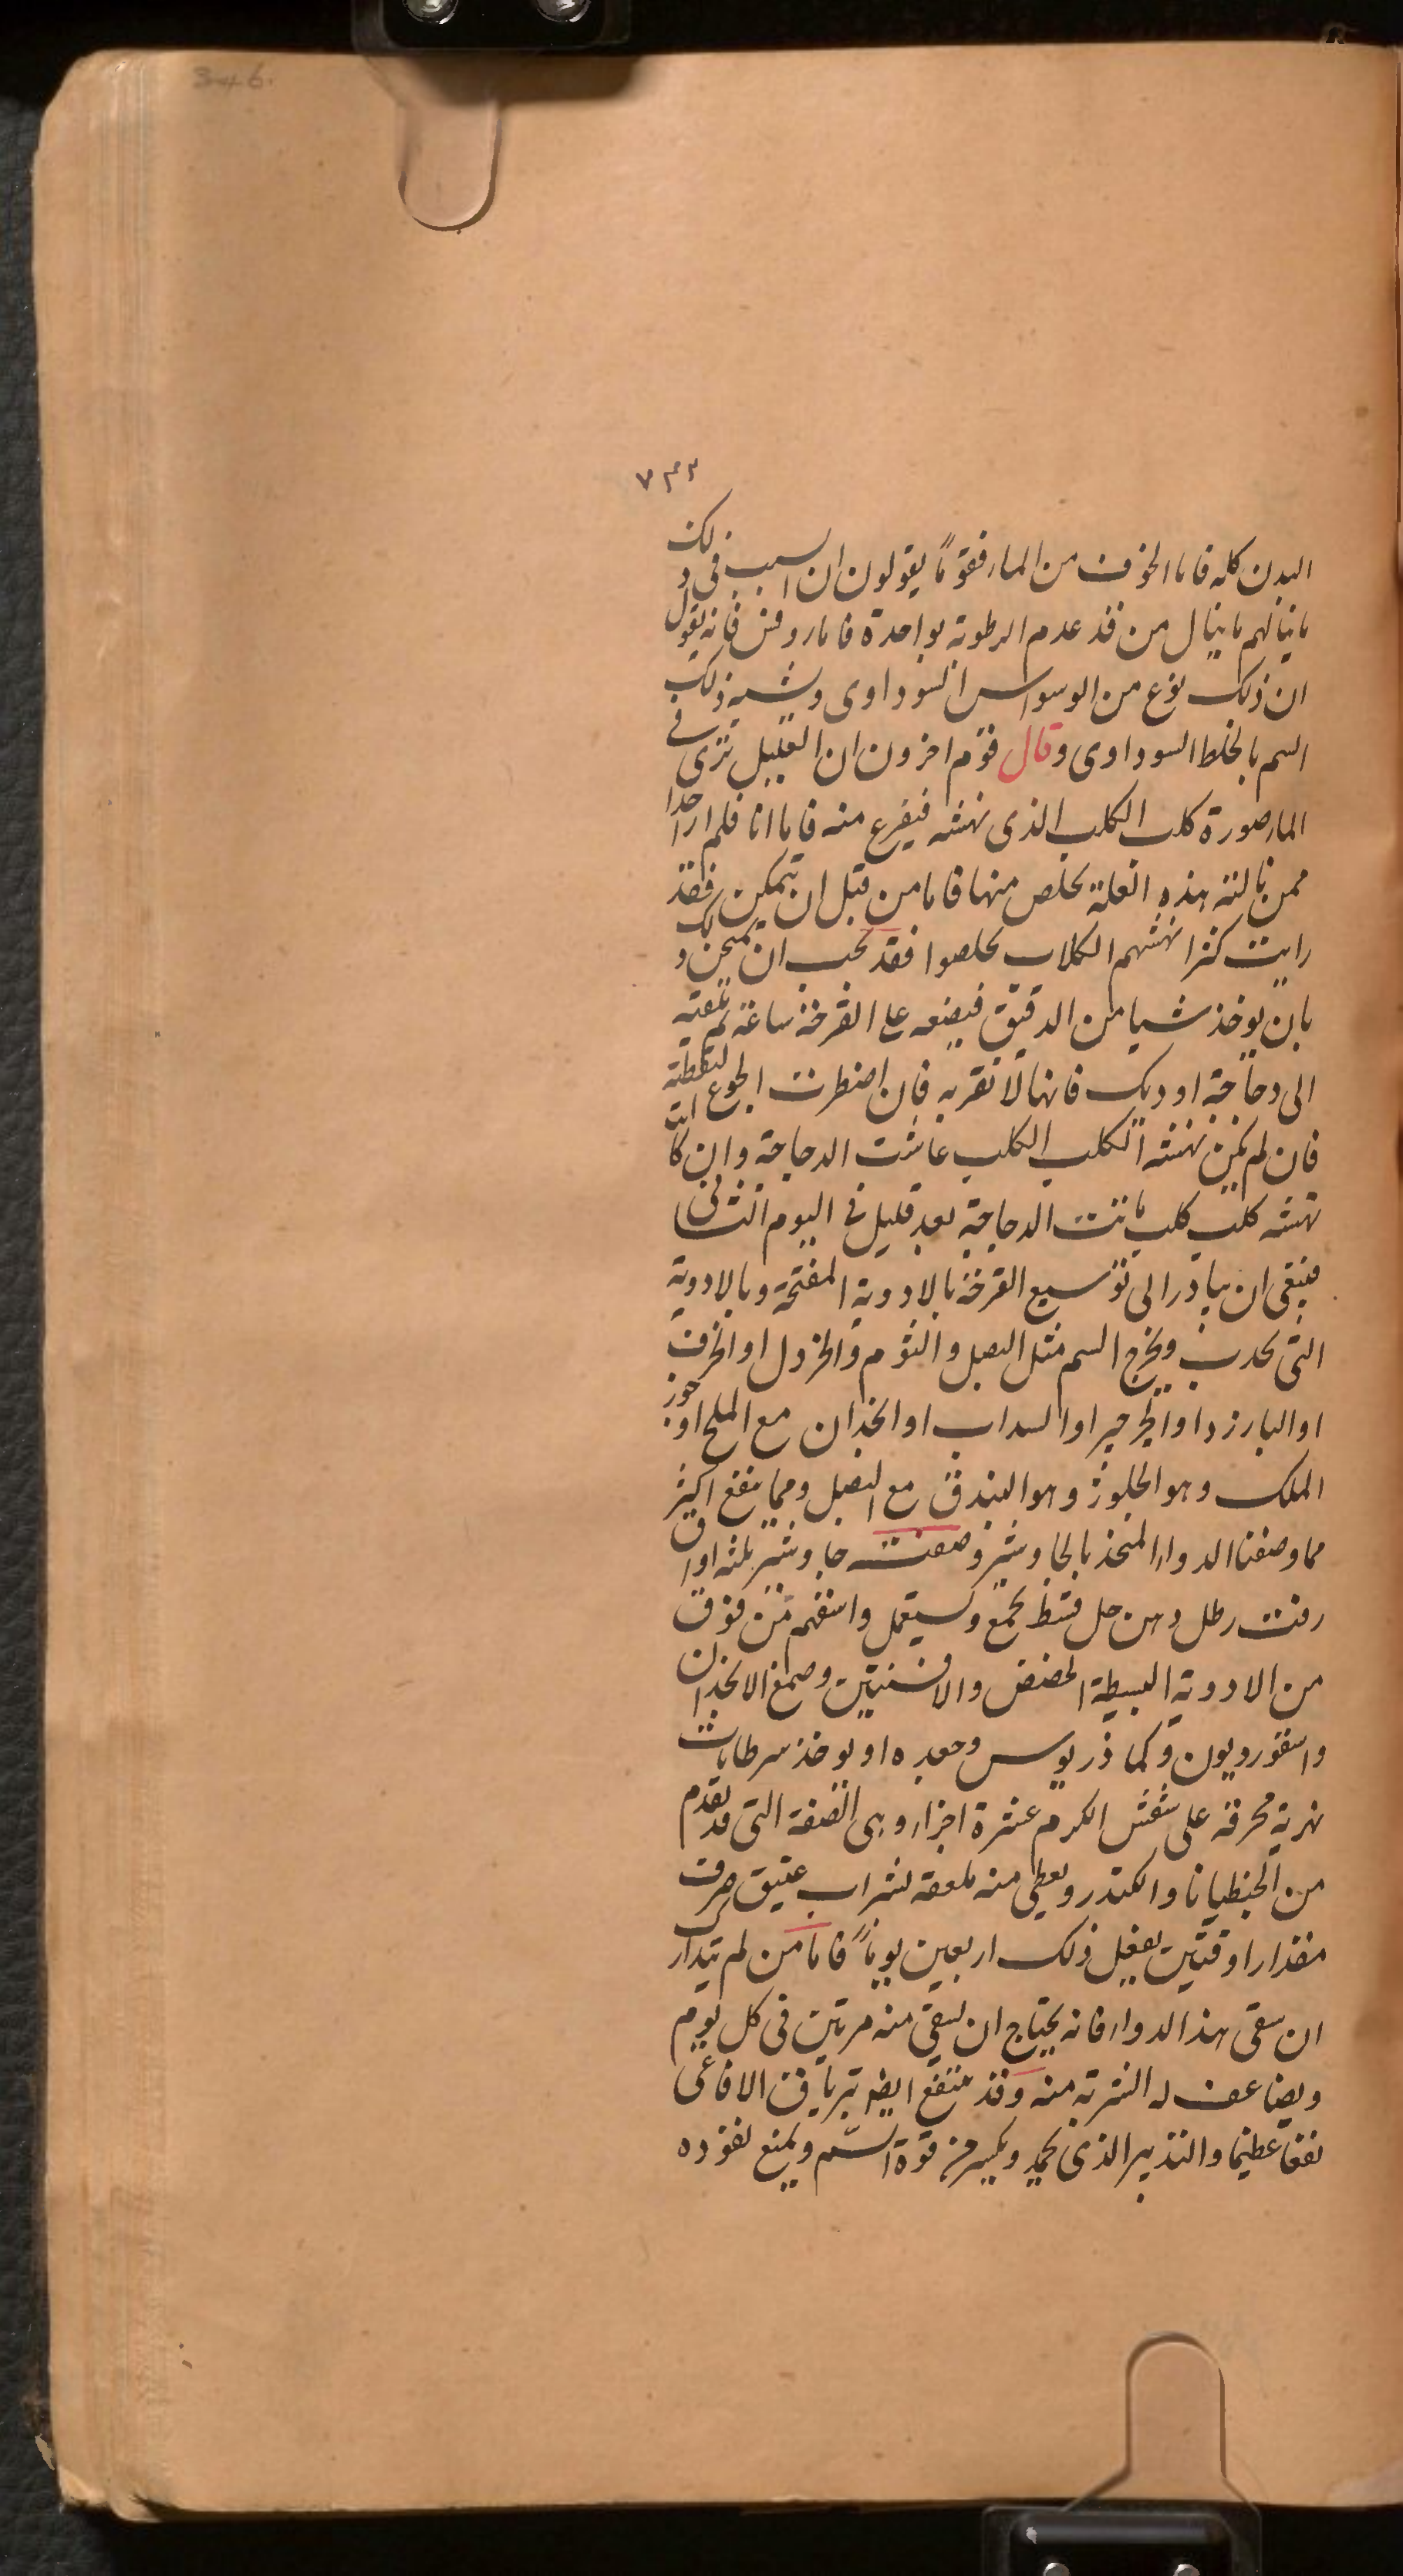 346
٧٣٣
البدن كله فاما الخوف من الماء فقوماً يقولون ان السبب فى ذلك
ما ينالهم ما ينال من قد عدم الرطوبة بواحدة فاما روفس فانه يقول
ان ذلك نوع من الوسواس السوداوى وشبه ذلك
السم بالخلط السوداوى وقال قوم اخرون ان العليل ترى فى
الماء صورة كلب الكلب الذى نهشه فيفزع منه فاما انا فلم ار احدا
ممن نالته هذه العلة تخلص منها فاما من قبل ان يتمكن فقد
رايت كثرا نهشهم الكلاب تخلصوا فقد تجب ان تمتحن ذلك
بان يوخذ شيا من الدقيق فيضعه على القرحة ساعة ثم تلقيه
الى دجاجة او ديك فانها لا تقربه فان اضطرت الجوع لتقطته
فان لم يكن نهشه الكلب الكلب عاشت الدجاجة وان كانت
نهشه كلب كلب ماتت الدجاجة بعد قليل فى اليوم الثانى
فينبغى ان يبادر الى توسيع القرحة بالادوية المفتحة وبالادوية
التى تحدب ويخرج السم مثل البصل والثوم والخردل او الحرف
او البارزد او الجرجير او السداب او الخدان مع الملح او جوز
الملك وهو الجلوز وهو البندق مع البصل ومما ينفع اكثر
مما وصفنا الدواء المتخذ بالجاوشير وصفته جاوشير ثلثه اواق
زفت رطل دهن خل قسط يجمع ويستعمل واسقهم من فوق
من الادوية البسيطة الحضض والافسنتين وصمغ الانجذان
واسقورديون وكماذريوس وجعده او يوخذ سرطانات
نهرية محرقة على شفش الكرم عشرة اجزاء وهى الصفة التى قد تقدم
من الجنطيانا والكندر ويعطى منه ملعقة بشراب عتيق صرف
مقدار اوقيتين يفعل ذلك اربعين يوماً فاما من لم يتدارك
ان سقى هذا الدواء فانه يحتاج ان يسقى منه مرتين فى كل يوم
ويضاعف له الشربة منه وقد ينتفع ايضا بترياق الافاعى
نفعا عظيما والتدبير الذى يحمد ويكسر من قوة السم ويمنع نفوذه